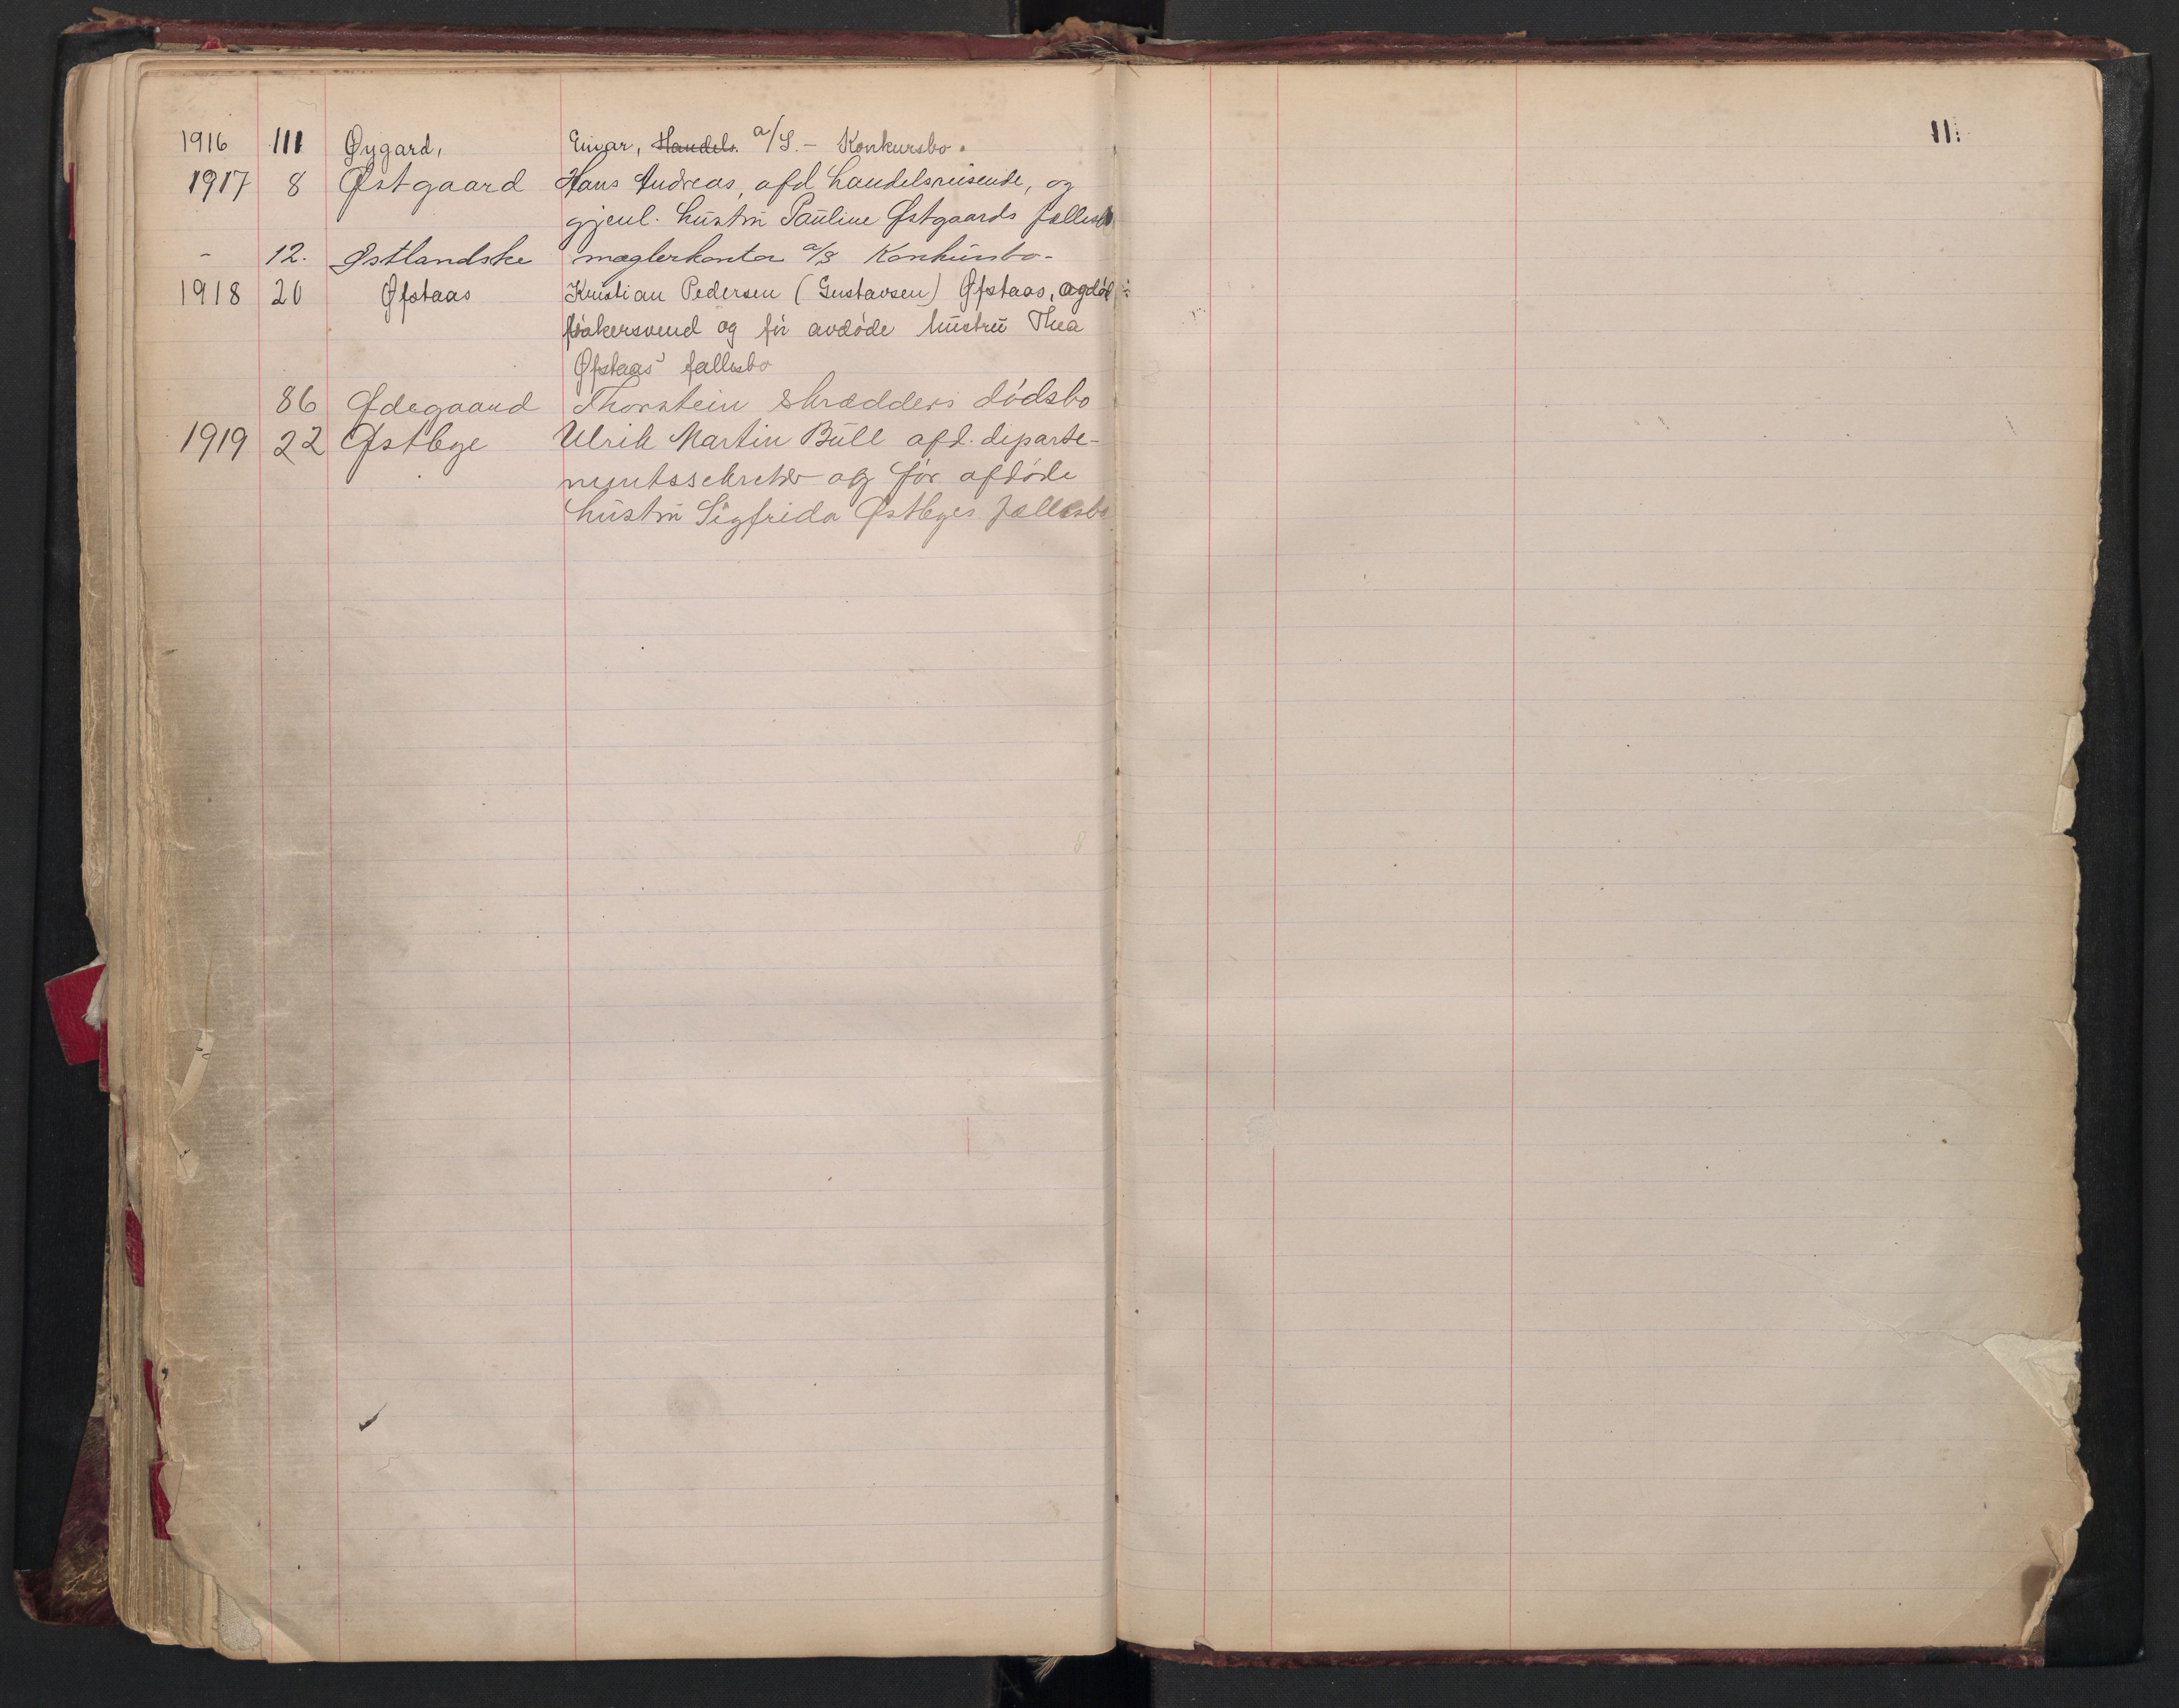 1916 111 Øygard, Einar, Handels. a/S. – Konkursbo.
1917 8 Østgaard Hans Andreas, afd handelsreisende, og
gjenl. hustru Pauline Østgaards fællesb
- 12. Østlandske mæglerkontor a/s Konkursbo-
1918 20 Øfstaas Kristian Pedersen (Gustavsen) Øfstaas,
og før avdøde hustru Thea
Øfstaas' fællesbo
86 Ødegaard Thorstein skrædders dødsbo
1919 22 Østbye Ulrik Martin Bull afd. departe-
mentssekretær og før afdøde
hustru Sigfrida Østbyes fællesbo
11.